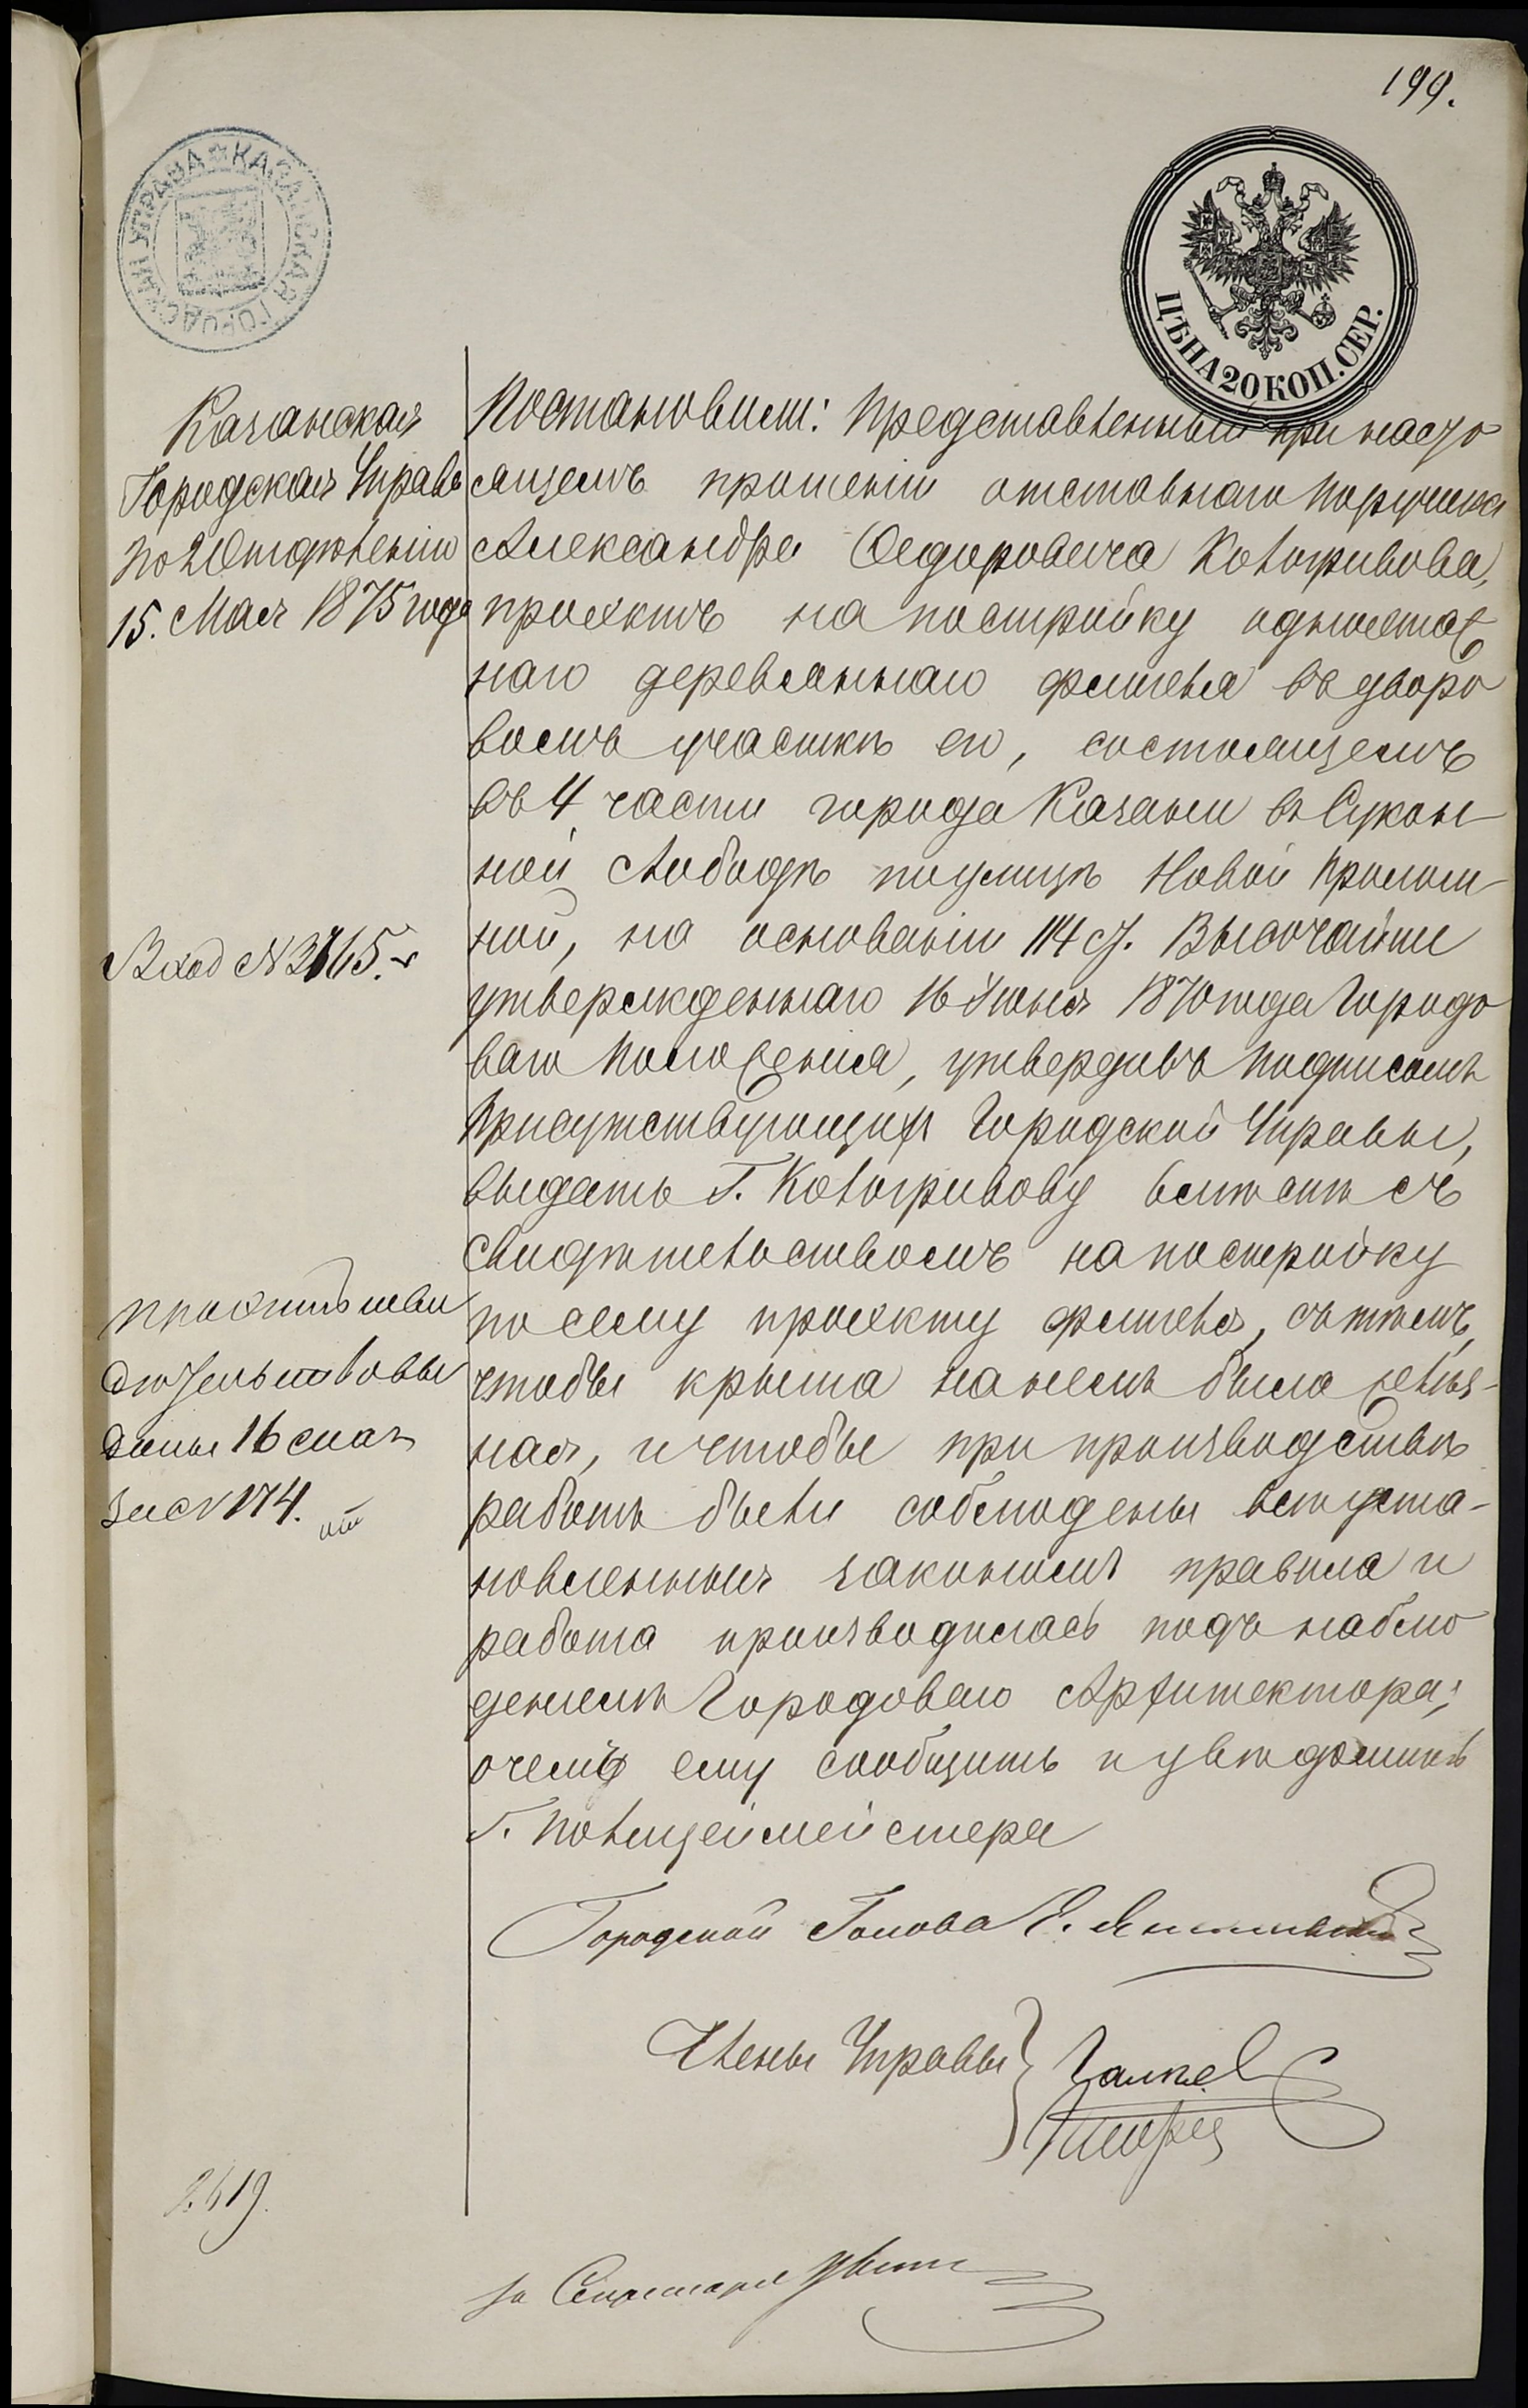 199.
КАЗАНСКАЯ ГОРОДСКАЯ УПРАВА
ЦѢНА 20 КОП. СЕР.
Казанская
Городская Управа
по 2 Отдѣленію
15. Мая 1875 года
Постановили: Представленный при насто
ящемъ прошеніи отставнаго Поручика
Александра Ѳедоровича Кологривова,
проэктъ на постройку одноэтаж
наго деревяннаго флигеля въ дворо
вомъ участкѣ его, состоящемъ
въ 4 части города Казани въ Сукон-
ной слободѣ по улицѣ Новой Пролом-
ной, на основаніи 114 ст. Высочайше
утвержденнаго 16 Іюня 1870 года Городо
ваго Положенія, утвердивъ подписомъ
Присутствующихъ Городской Управы,
выдать Г. Кологривову вмѣстѣ съ
свидѣтельствомъ на постройку
по сему проэкту флигеля, съ тѣмъ,
чтобы крыша на немъ была желѣз-
ная, и чтобы при производствѣ
работъ были соблюдены всѣ уста-
новленныя закономъ правила и
работа производилась подъ наблю
деніемъ Городоваго Архитектора;
о чемъ ему сообщить и увѣдомить
Г. Полицеймейстера
Вход № 2765.
проэктъ и сви
дѣтельство вы
даны 16 мая
за № 174.
Городской Голова Э. Янишевскій
Члены Управы
2619.
за Секретаря